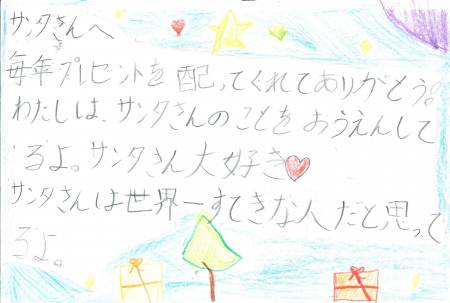 サンタさんへ
毎年プレゼントを配ってくれてありがとう。
わたしは、サンタさんのことをおうえんして
るよ。サンタさん大好き
サンタさんは世界一すてきな人だと思って
るよ。